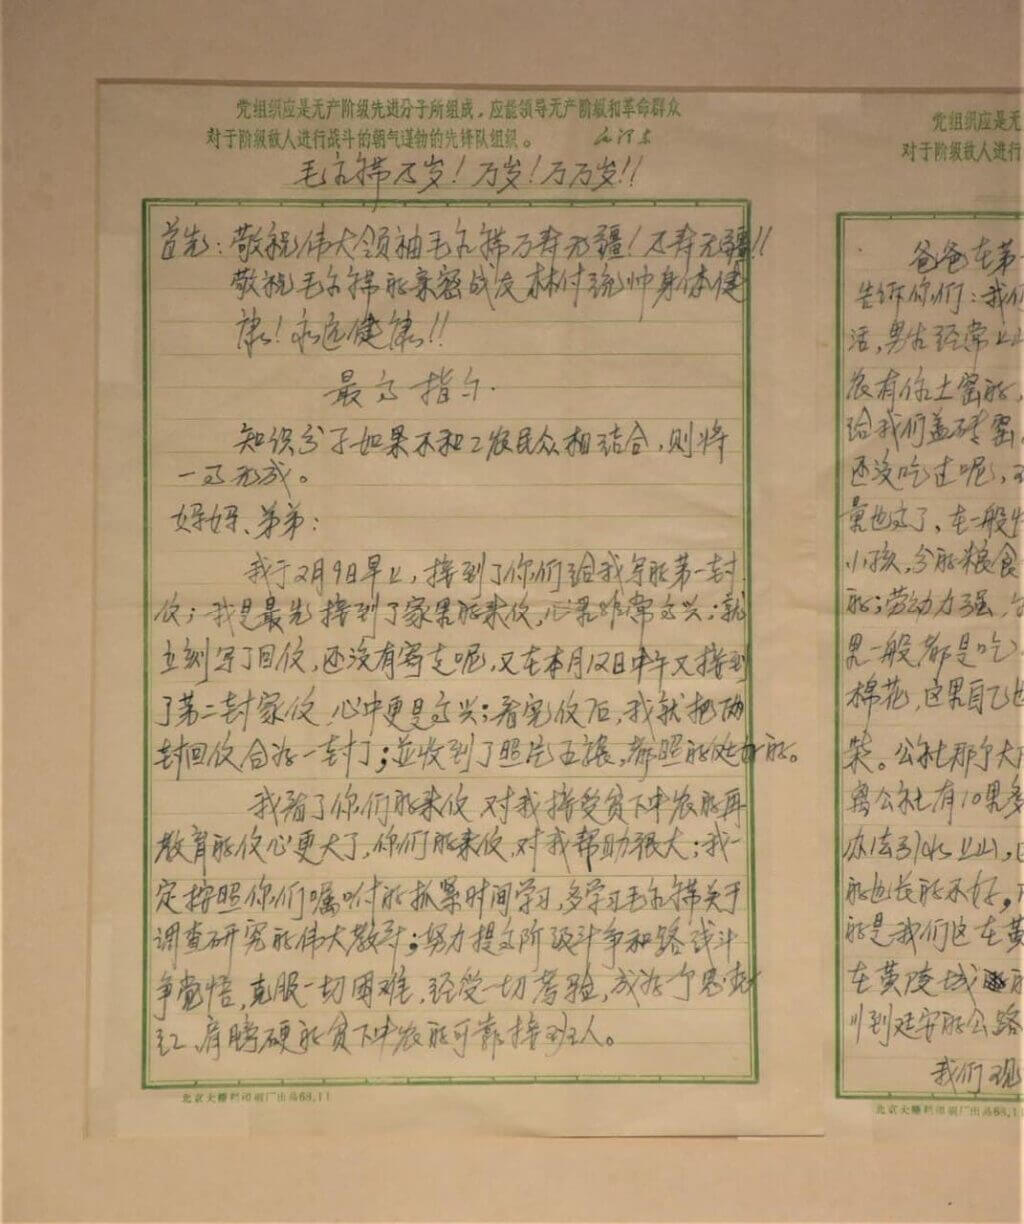 党组织应是无产阶级先进分子所组成,应能领导无产阶级和革命群众
对于阶级敌人进行战斗的朝气蓬勃的先锋队组织。 毛泽东
毛主席万岁!万岁!万万岁!!
首先:敬祝伟大领袖毛主席万寿无疆!万寿无疆!!
敬祝毛主席的亲密战友林付统帅身体健
康!永远健康!!
最高指示.
知识分子如果不和工农民众相结合,则将
一事无成。
妈妈、弟弟:
我于2月9日早上,接到了你们给我写的第一封
信;我是最先接到了家里的来信,心里非常高兴;就
立刻写了回信,还没有寄走呢,又在本月12日中午又接到
了第二封家信,心中更是高兴;看完信后,我就把两
封回信合为一封了;並收到了照片五张,都照的挺好的。
我看了你们的来信 对我接受贫下中农的再
教育的信心更大了,你们的来信,对我帮助很大;我一
定按照你们嘱咐的抓紧时间学习,多学习毛主席关于
调查研究的伟大教导;努力提高阶级斗争和路线斗
争觉悟,克服一切困难,经受一切考验,成为一个思想
红、肩膀硬的贫下中农的可靠接班人。
北京大栅栏印刷厂出品68.11
党组织应是无
对于阶级敌人进行
爸爸在第一
告诉你们:我们
活,男女经常上山
农有住土窑的,
给我们盖砖窑
还没吃过呢,
量也高了、在一般
小孩,分的粮食
的;劳动力强,
里一般都是吃
棉花,这里自己也
菜。公社那个大
离公社有10里多
办法引水上山,
的也长的不好,
的是我们这在黄
在黄陵城
川到延安的公路
我们现
北京大栅栏印刷厂出品68.1